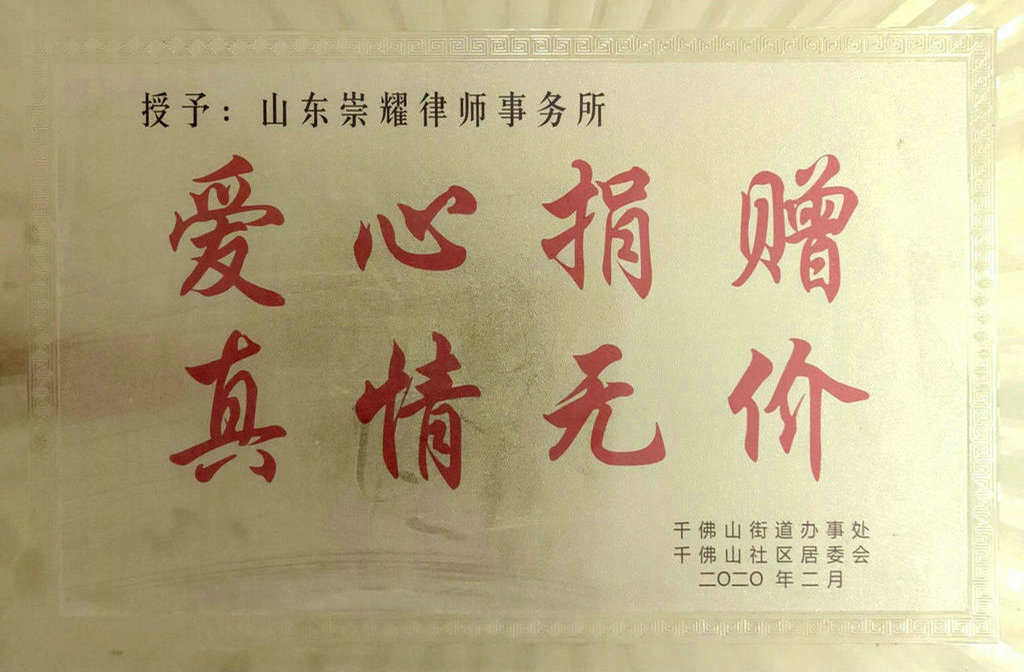 授予：山东崇耀律师事务所
爱心捐赠
真情无价
千佛山街道办事处
千佛山社区居委会
二〇二〇年二月